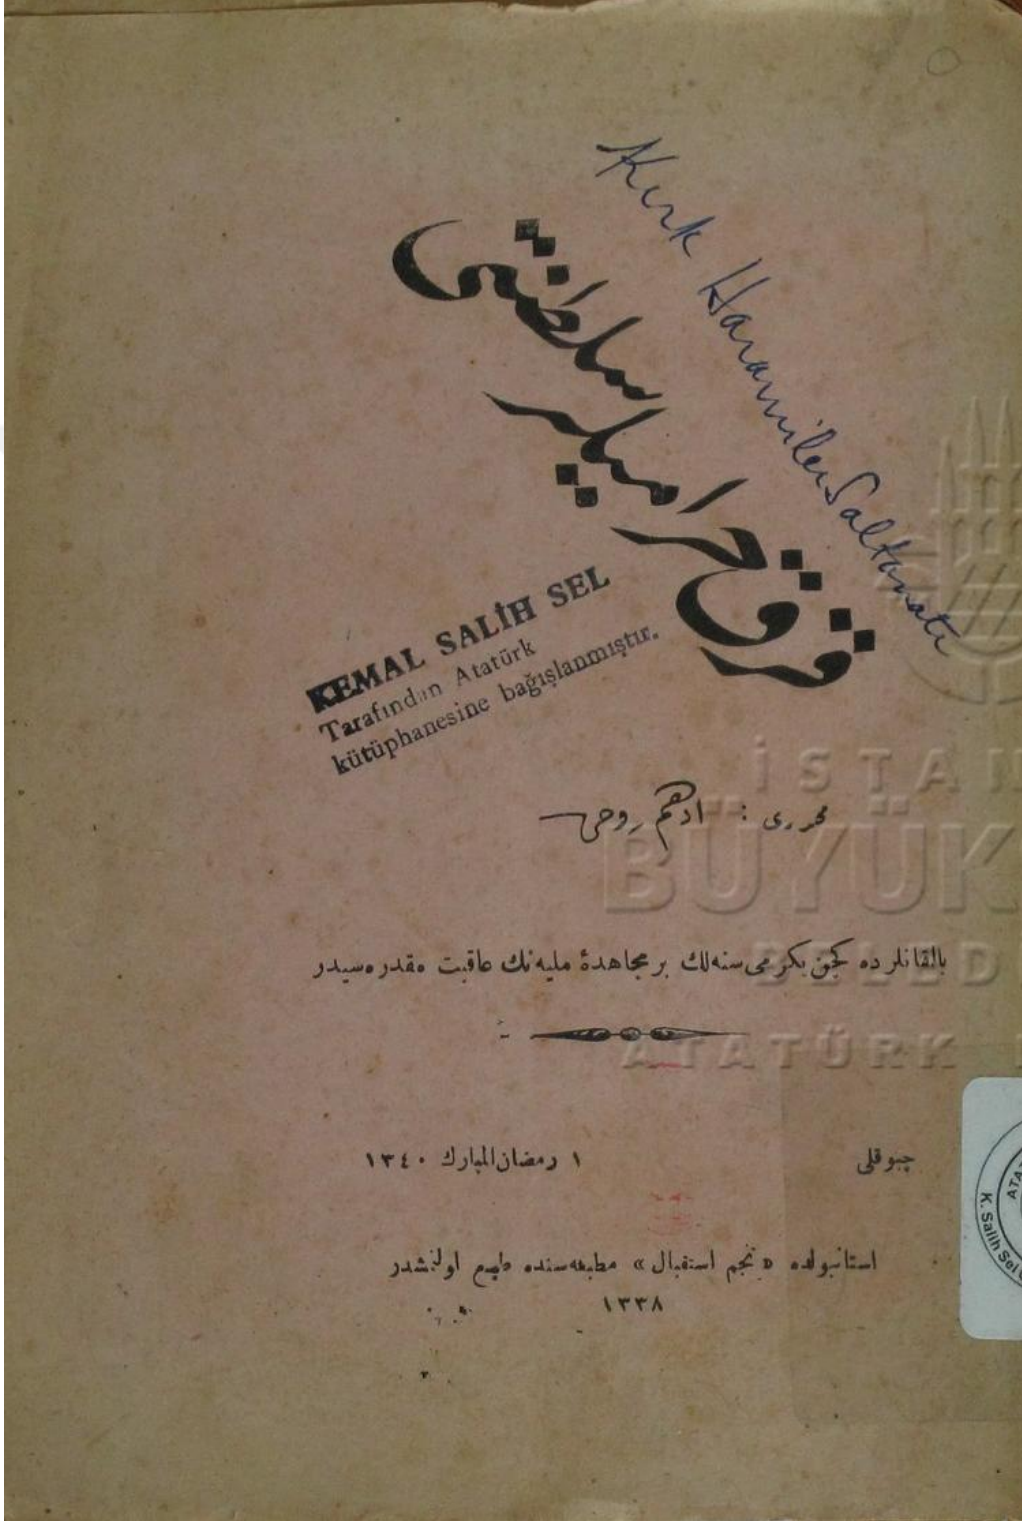 Kırk Haramiler Saltanatı
قرق حراميلر سلطنتى
KEMAL SALİH SEL
Tarafından Atatürk
kütüphanesine bağışlanmıştır.
محررى : ادهم روحى
بالقانلرده كچن يكرمى سنه‌لك بر مجاهدهٔ مليه‌نك عاقبت مقدره‌سيدر
چبوقلى ١ رمضان المبارك ١٣٤٠
استانبولده «نجم استقبال» مطبعه‌سنده طبع اولنمشدر
١٣٣٨
İSTAN
BÜYÜK
BELED
ATATÜRK
K. Salih Sel